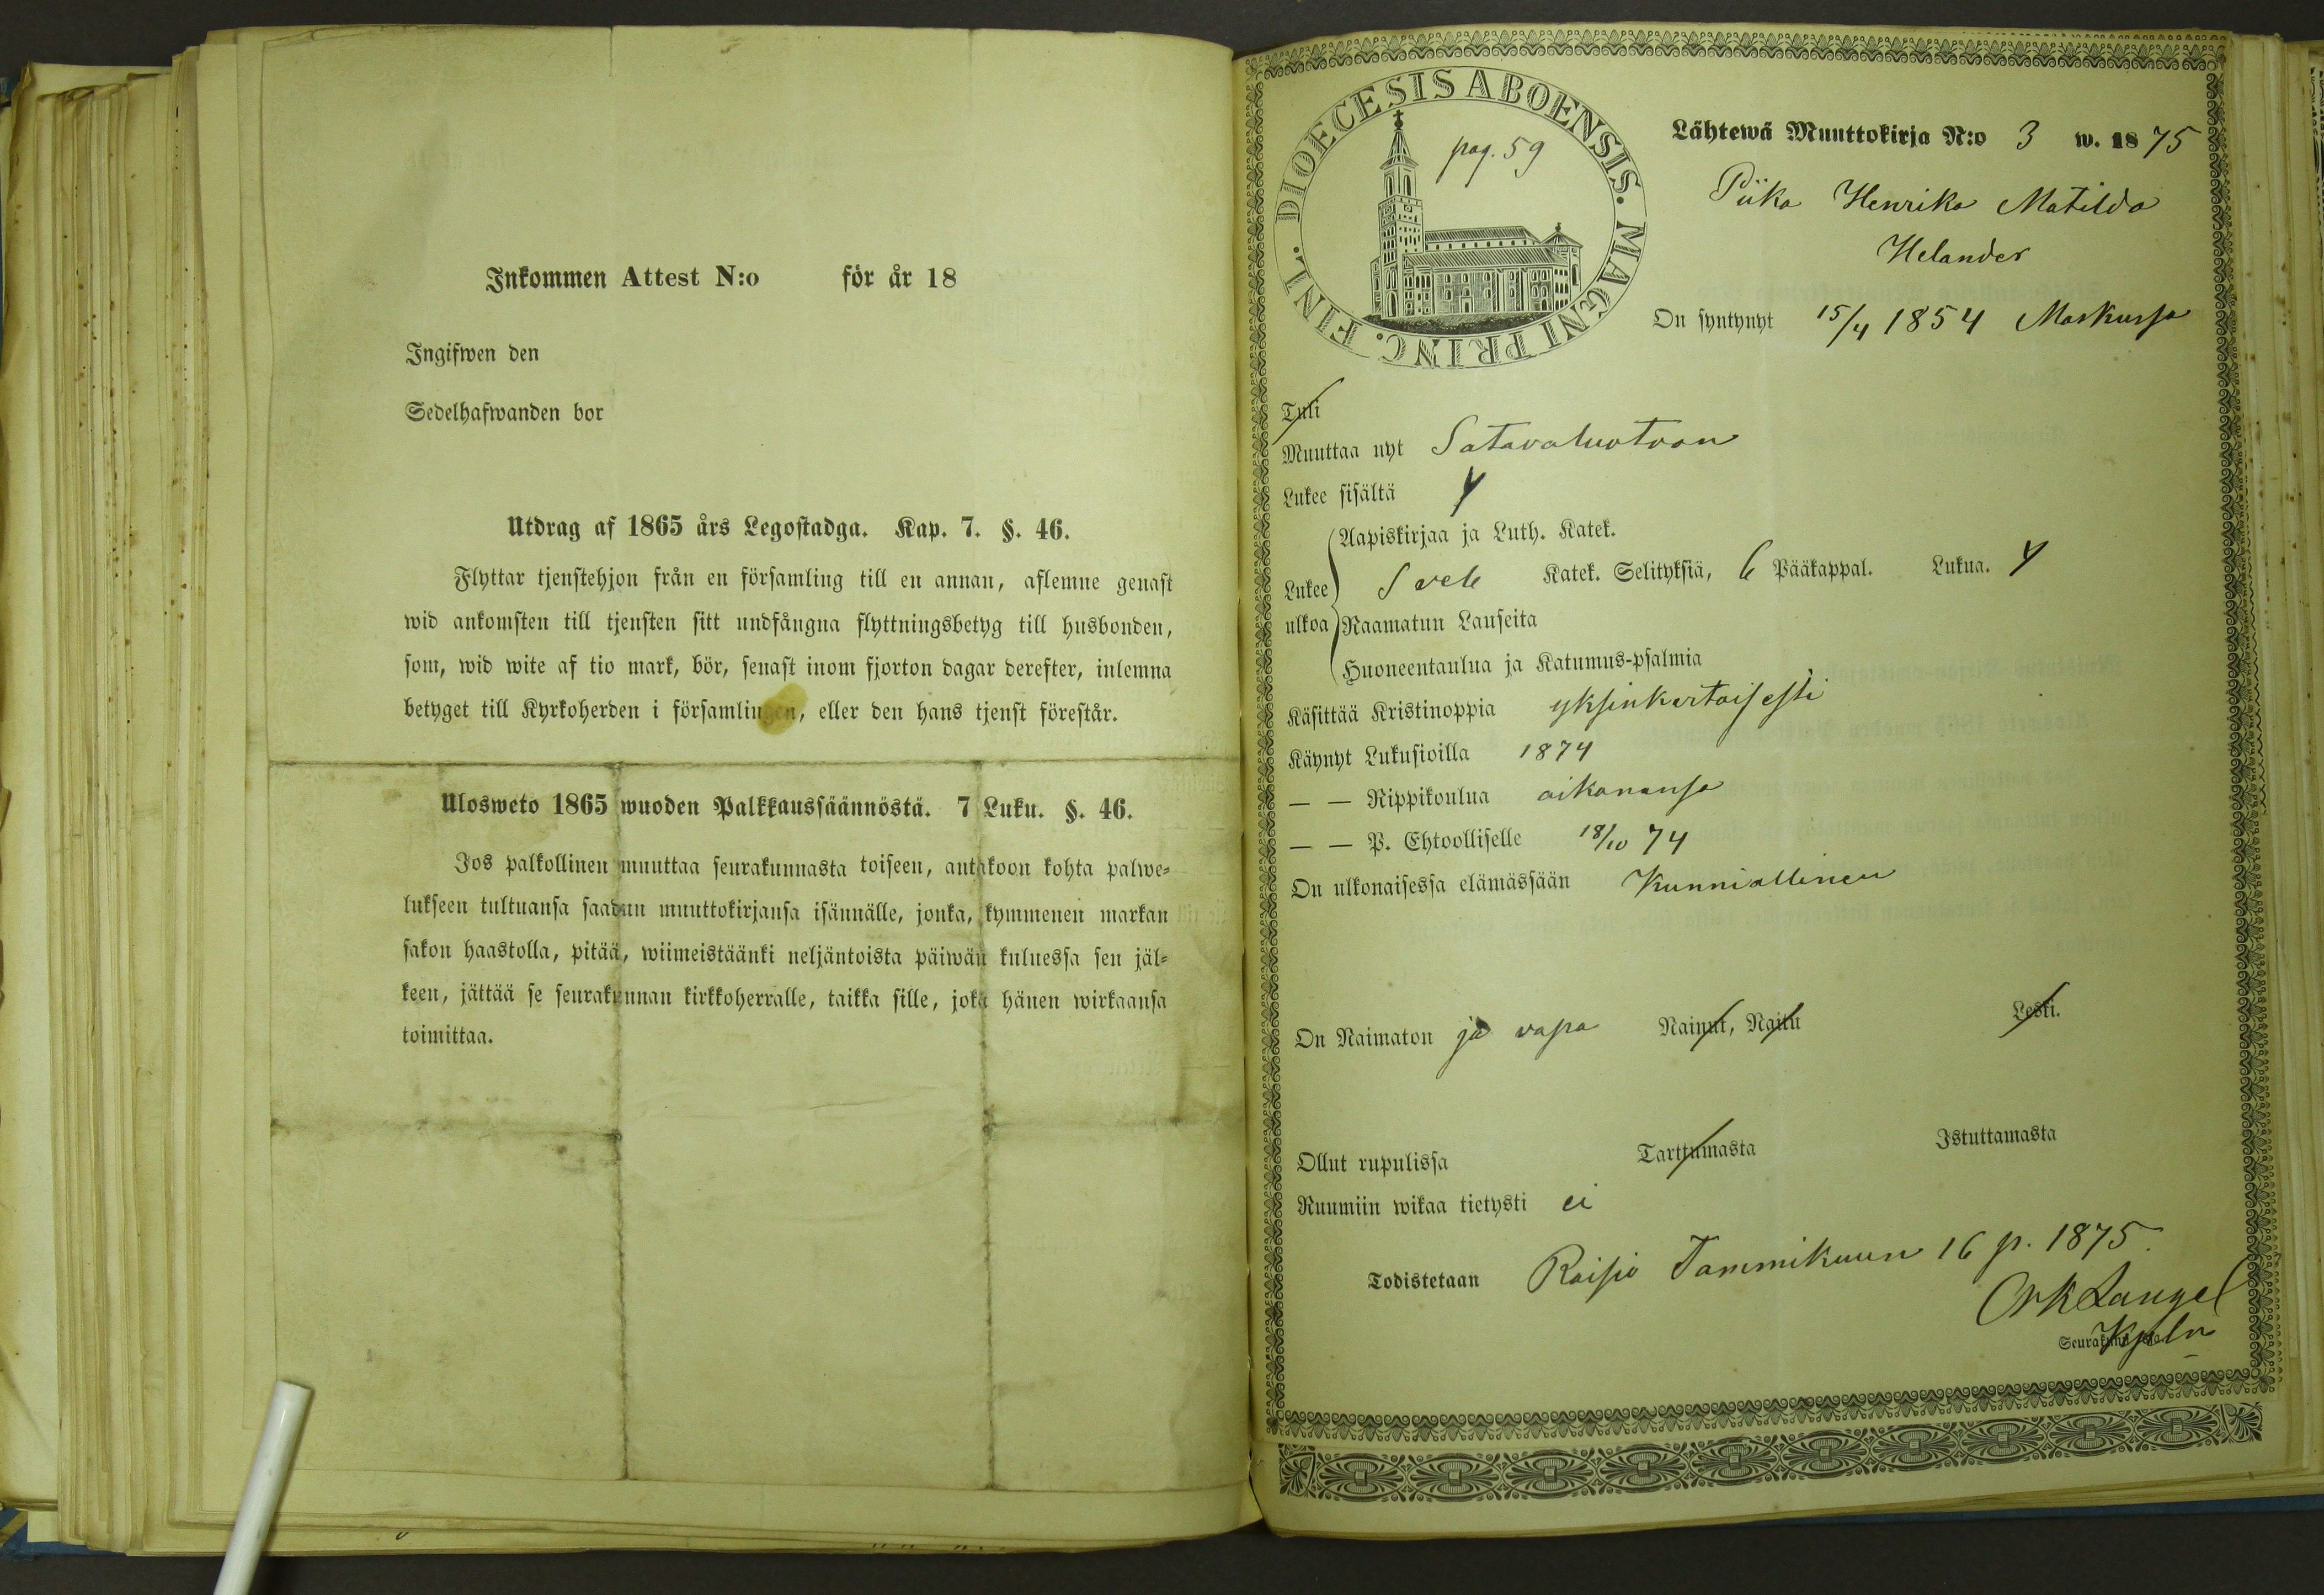 Inkommen Attest N:o för år 18
Ingifwen den
Sedelhafwanden bor
Utdrag af 1865 års Legostadga. Kap. 7. §. 46.
Flyttar tjenstehjon från en församling till en annan, aflemne genast
wid ankomsten till tjensten sitt undfångna flyttningsbetyg till husbonden,
som, wid wite af tio mark, bör, senast inom fjorton dagar derefter, inlemna
betyget till Kyrkoherden i församlingen, eller den hans tjenst förestår.
Ulosweto 1865 wuoden Palkkaussäännöstä. 7 Luku. §. 46.
Jos palkollinen muuttaa seurakunnasta toiseen, antakoon kohta palwe-
lukseen tultuansa saadun muuttokirjansa isännälle, jonka, kymmenen markan
sakon haastolla, pitää, wiimeistäänki neljäntoista päiwän kuluessa sen jäl-
keen, jättää se seurakunnan kirkkoherralle, taikka sille, joka hänen wirkaansa
toimittaa.
DIOECESIS ABOENSIS. MAGNI PRINC. FINL.
pag. 59
Lähtewä Muuttokirja N:o 3 w. 1875
Piika Henrika Matilda
Helander
On syntynyt 15/4 1854 Maskussa
Tuli
Muuttaa nyt Satavaluotoon
Lukee sisältä y
Aapiskirjaa ja Luth. Katek.
Lukee ulkoa Sveb Katek. Selityksiä, 6 Pääkappal. Lukua. y
Raamatun Lauseita
Huoneentaulua ja Katumus-psalmia
Käsittää Kristinoppia yksinkertaisesti
Käynyt Lukusioilla 1874
— — Rippikoulua aikanansa
— — P. Ehtoolliselle 18/10 74
On ulkonaisessa elämässään Kunniallinen
On Naimaton ja vapa Nainut, Naitu Leski.
Ollut rupulissa Tarttumasta Istuttamasta
Ruumiin wikaa tietysti ei
Todistetaan Raisio Tammikuun 16 p. 1875.
Langel
Kpln